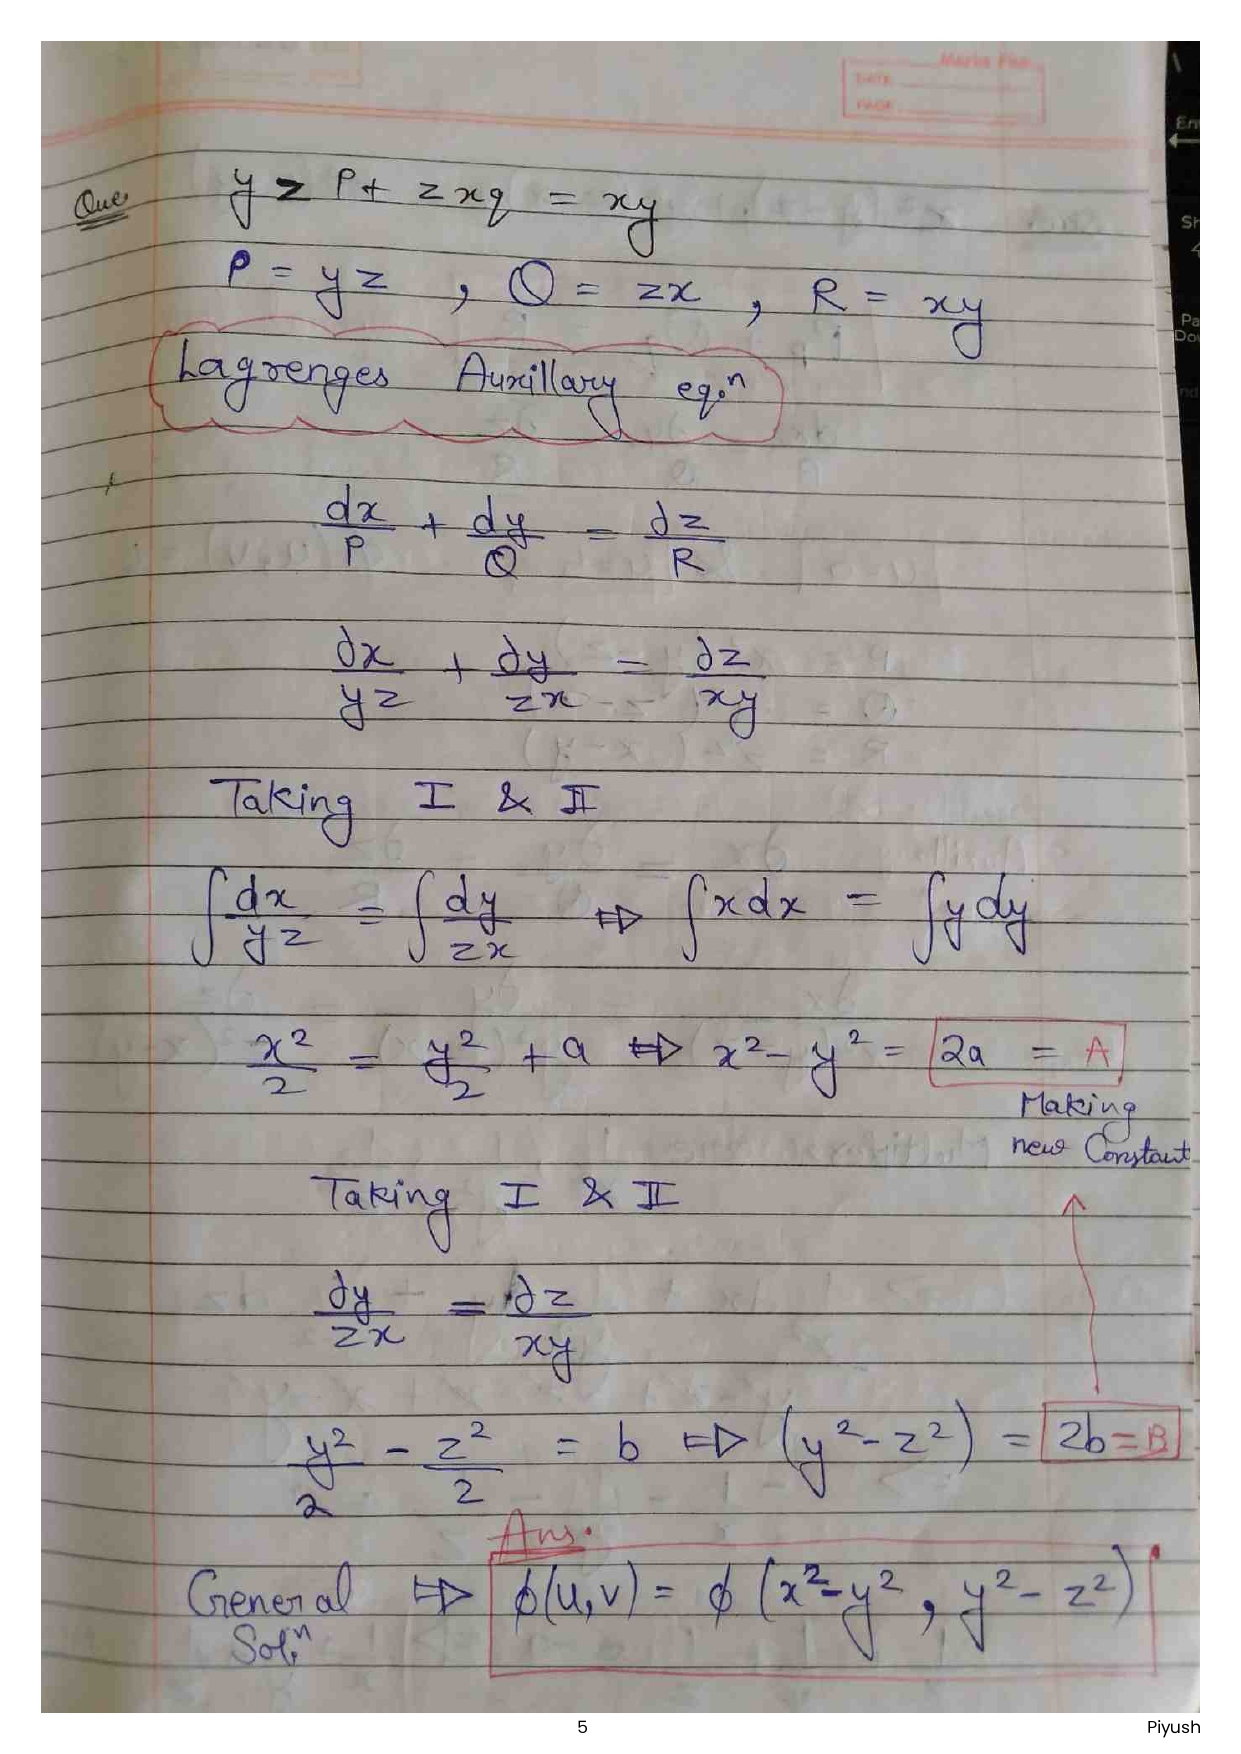 DATE
PAGE
Que yz P + zxq = xy
P = yz , Q = zx , R = xy
Lagrenges Auxillary eq.ⁿ
dx/P + dy/Q = dz/R
dx/yz + dy/zx = dz/xy
Taking I & II
∫dx/yz = ∫dy/zx ⇒ ∫x dx = ∫y dy
x²/2 = y²/2 + a ⇒ x² - y² = 2a = A
Making
new Constant
Taking I & II
dy/zx = dz/xy
y²/2 - z²/2 = b ⇒ (y² - z²) = 2b = B
Ans.
General ⇒ ϕ(u,v) = ϕ (x²-y² , y²- z²)
Sol.ⁿ
5
Piyush